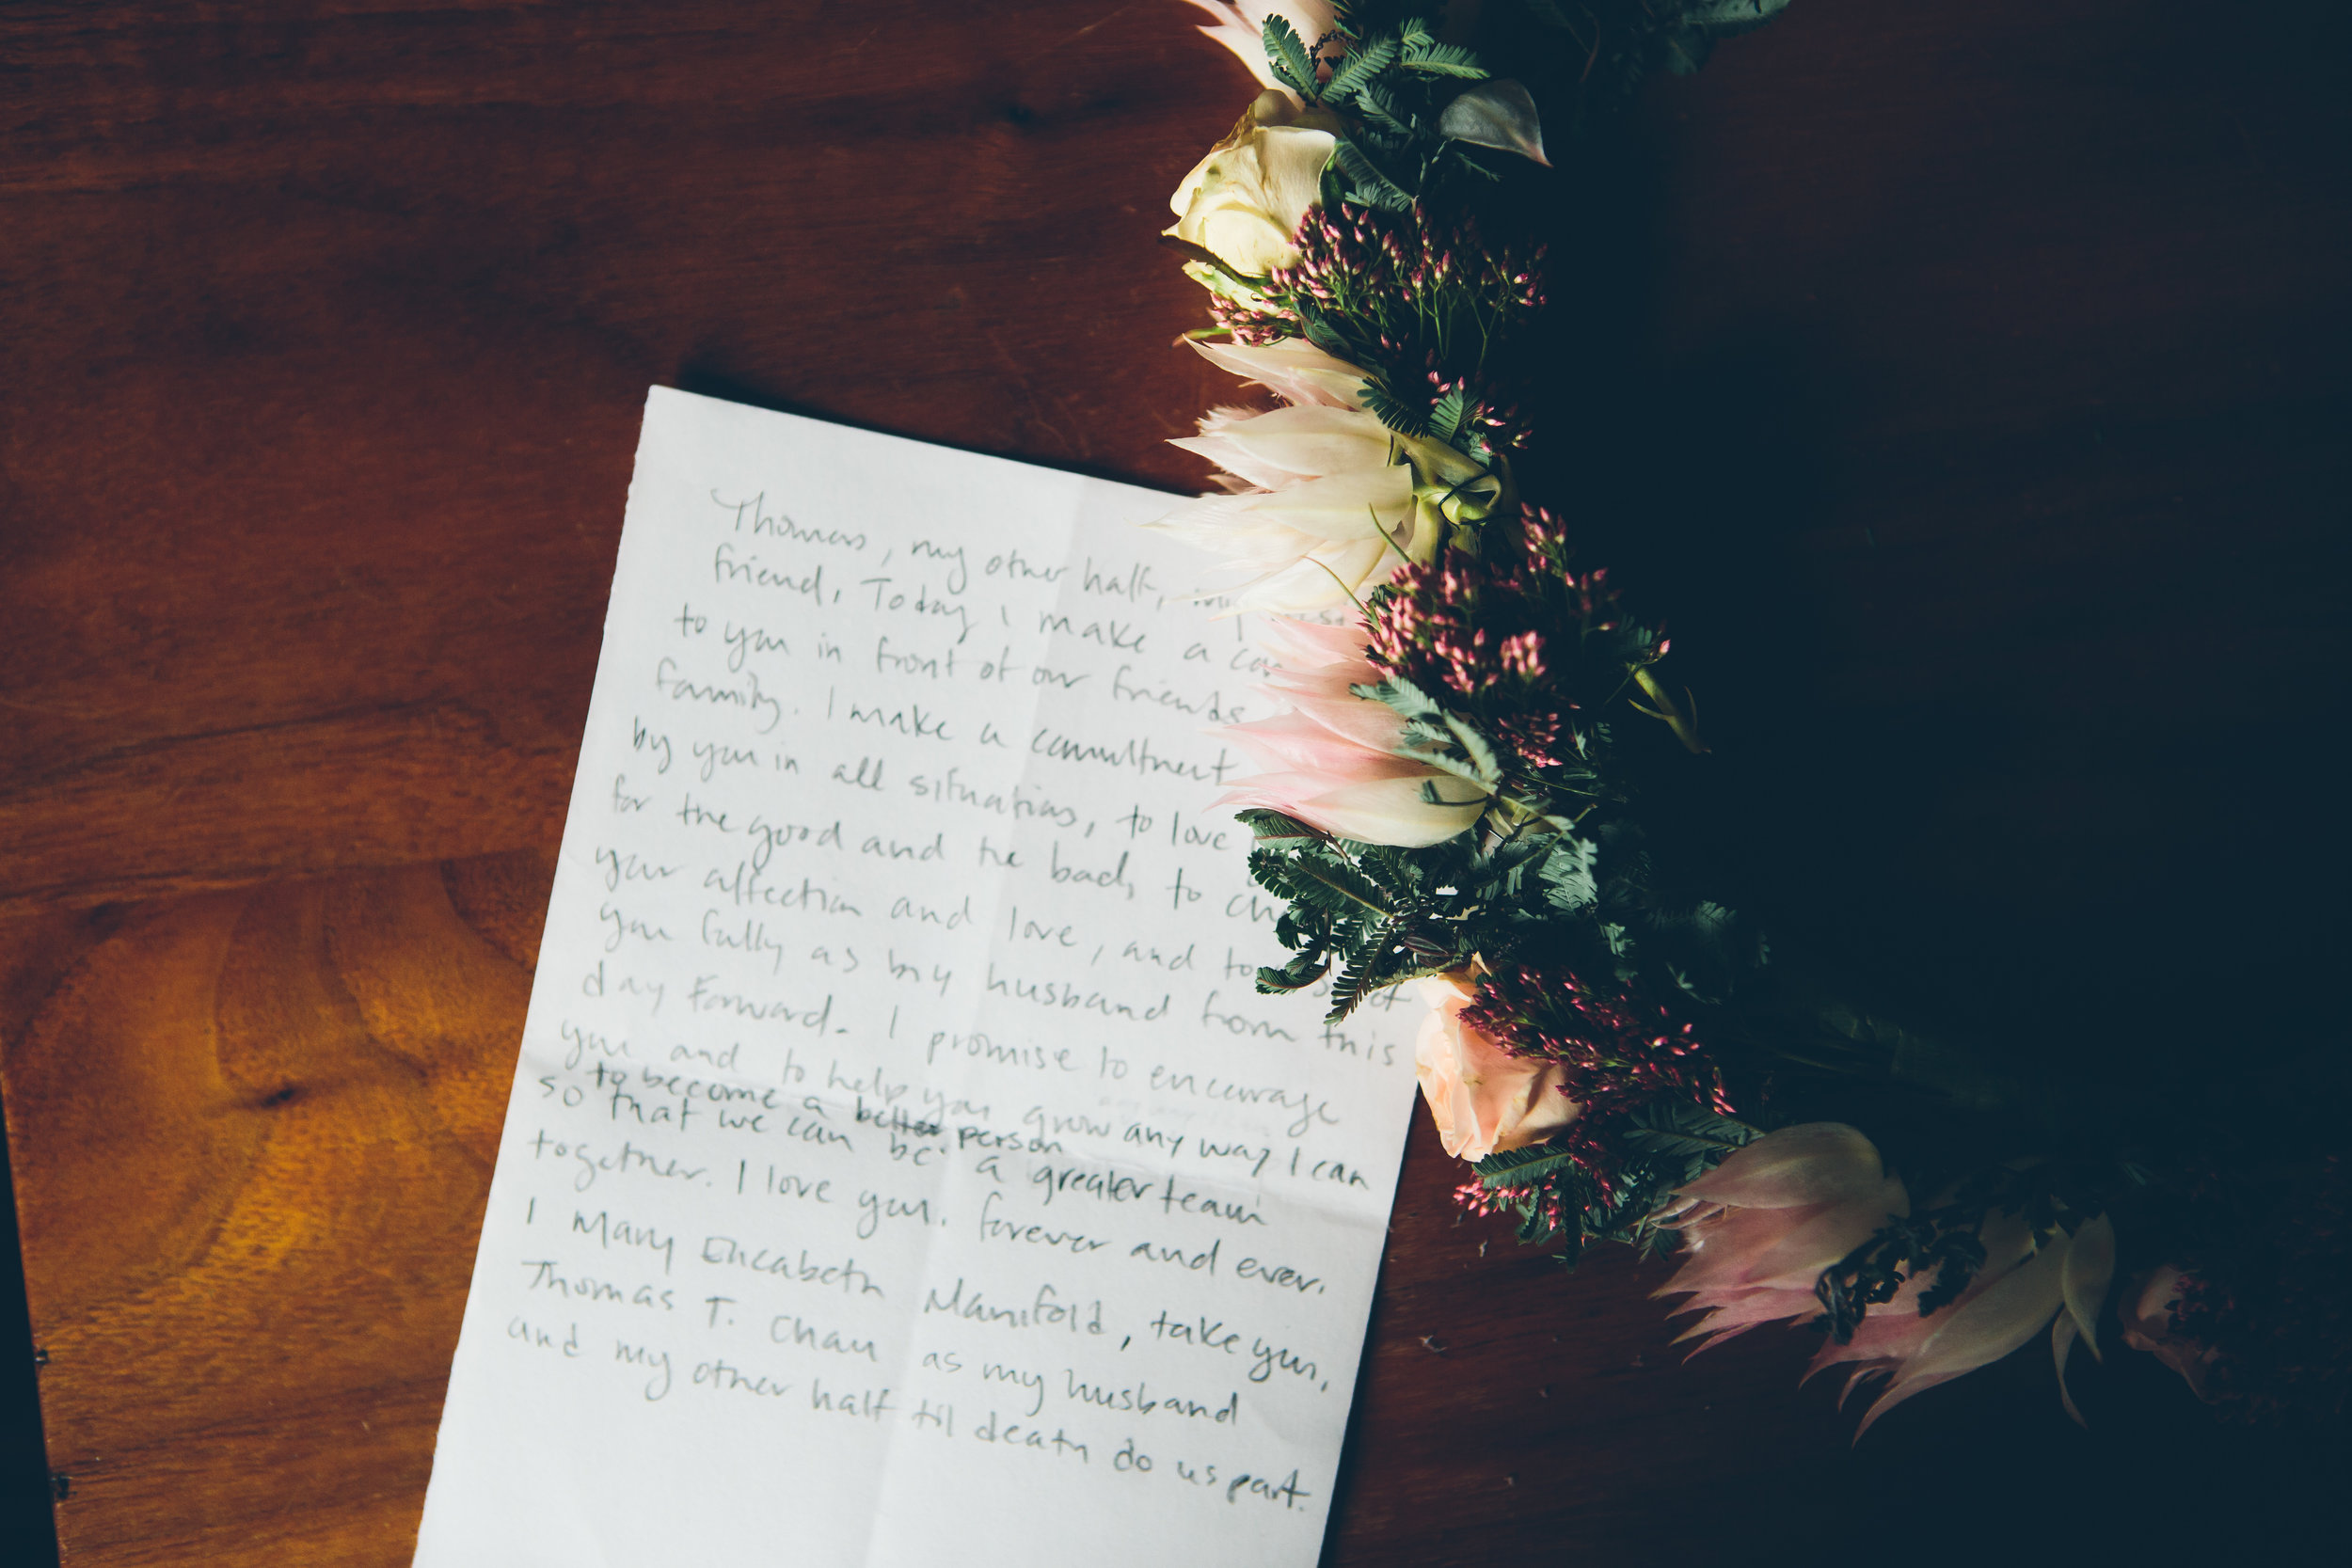 Thomas, my other half, my
friend, Today I make a
to you in front of our friends
family. I make a commitment
by you in all situations, to love
for the good and the bad, to
your affection and love, and to
you fully as my husband from this
day forward. I promise to encourage
you and to help you grow any way I can
to become a better person
so that we can be a greater team
together. I love you. forever and ever.
I Mary Elizabeth Manifold, take you,
Thomas T. Chau as my husband
and my other half til death do us part.